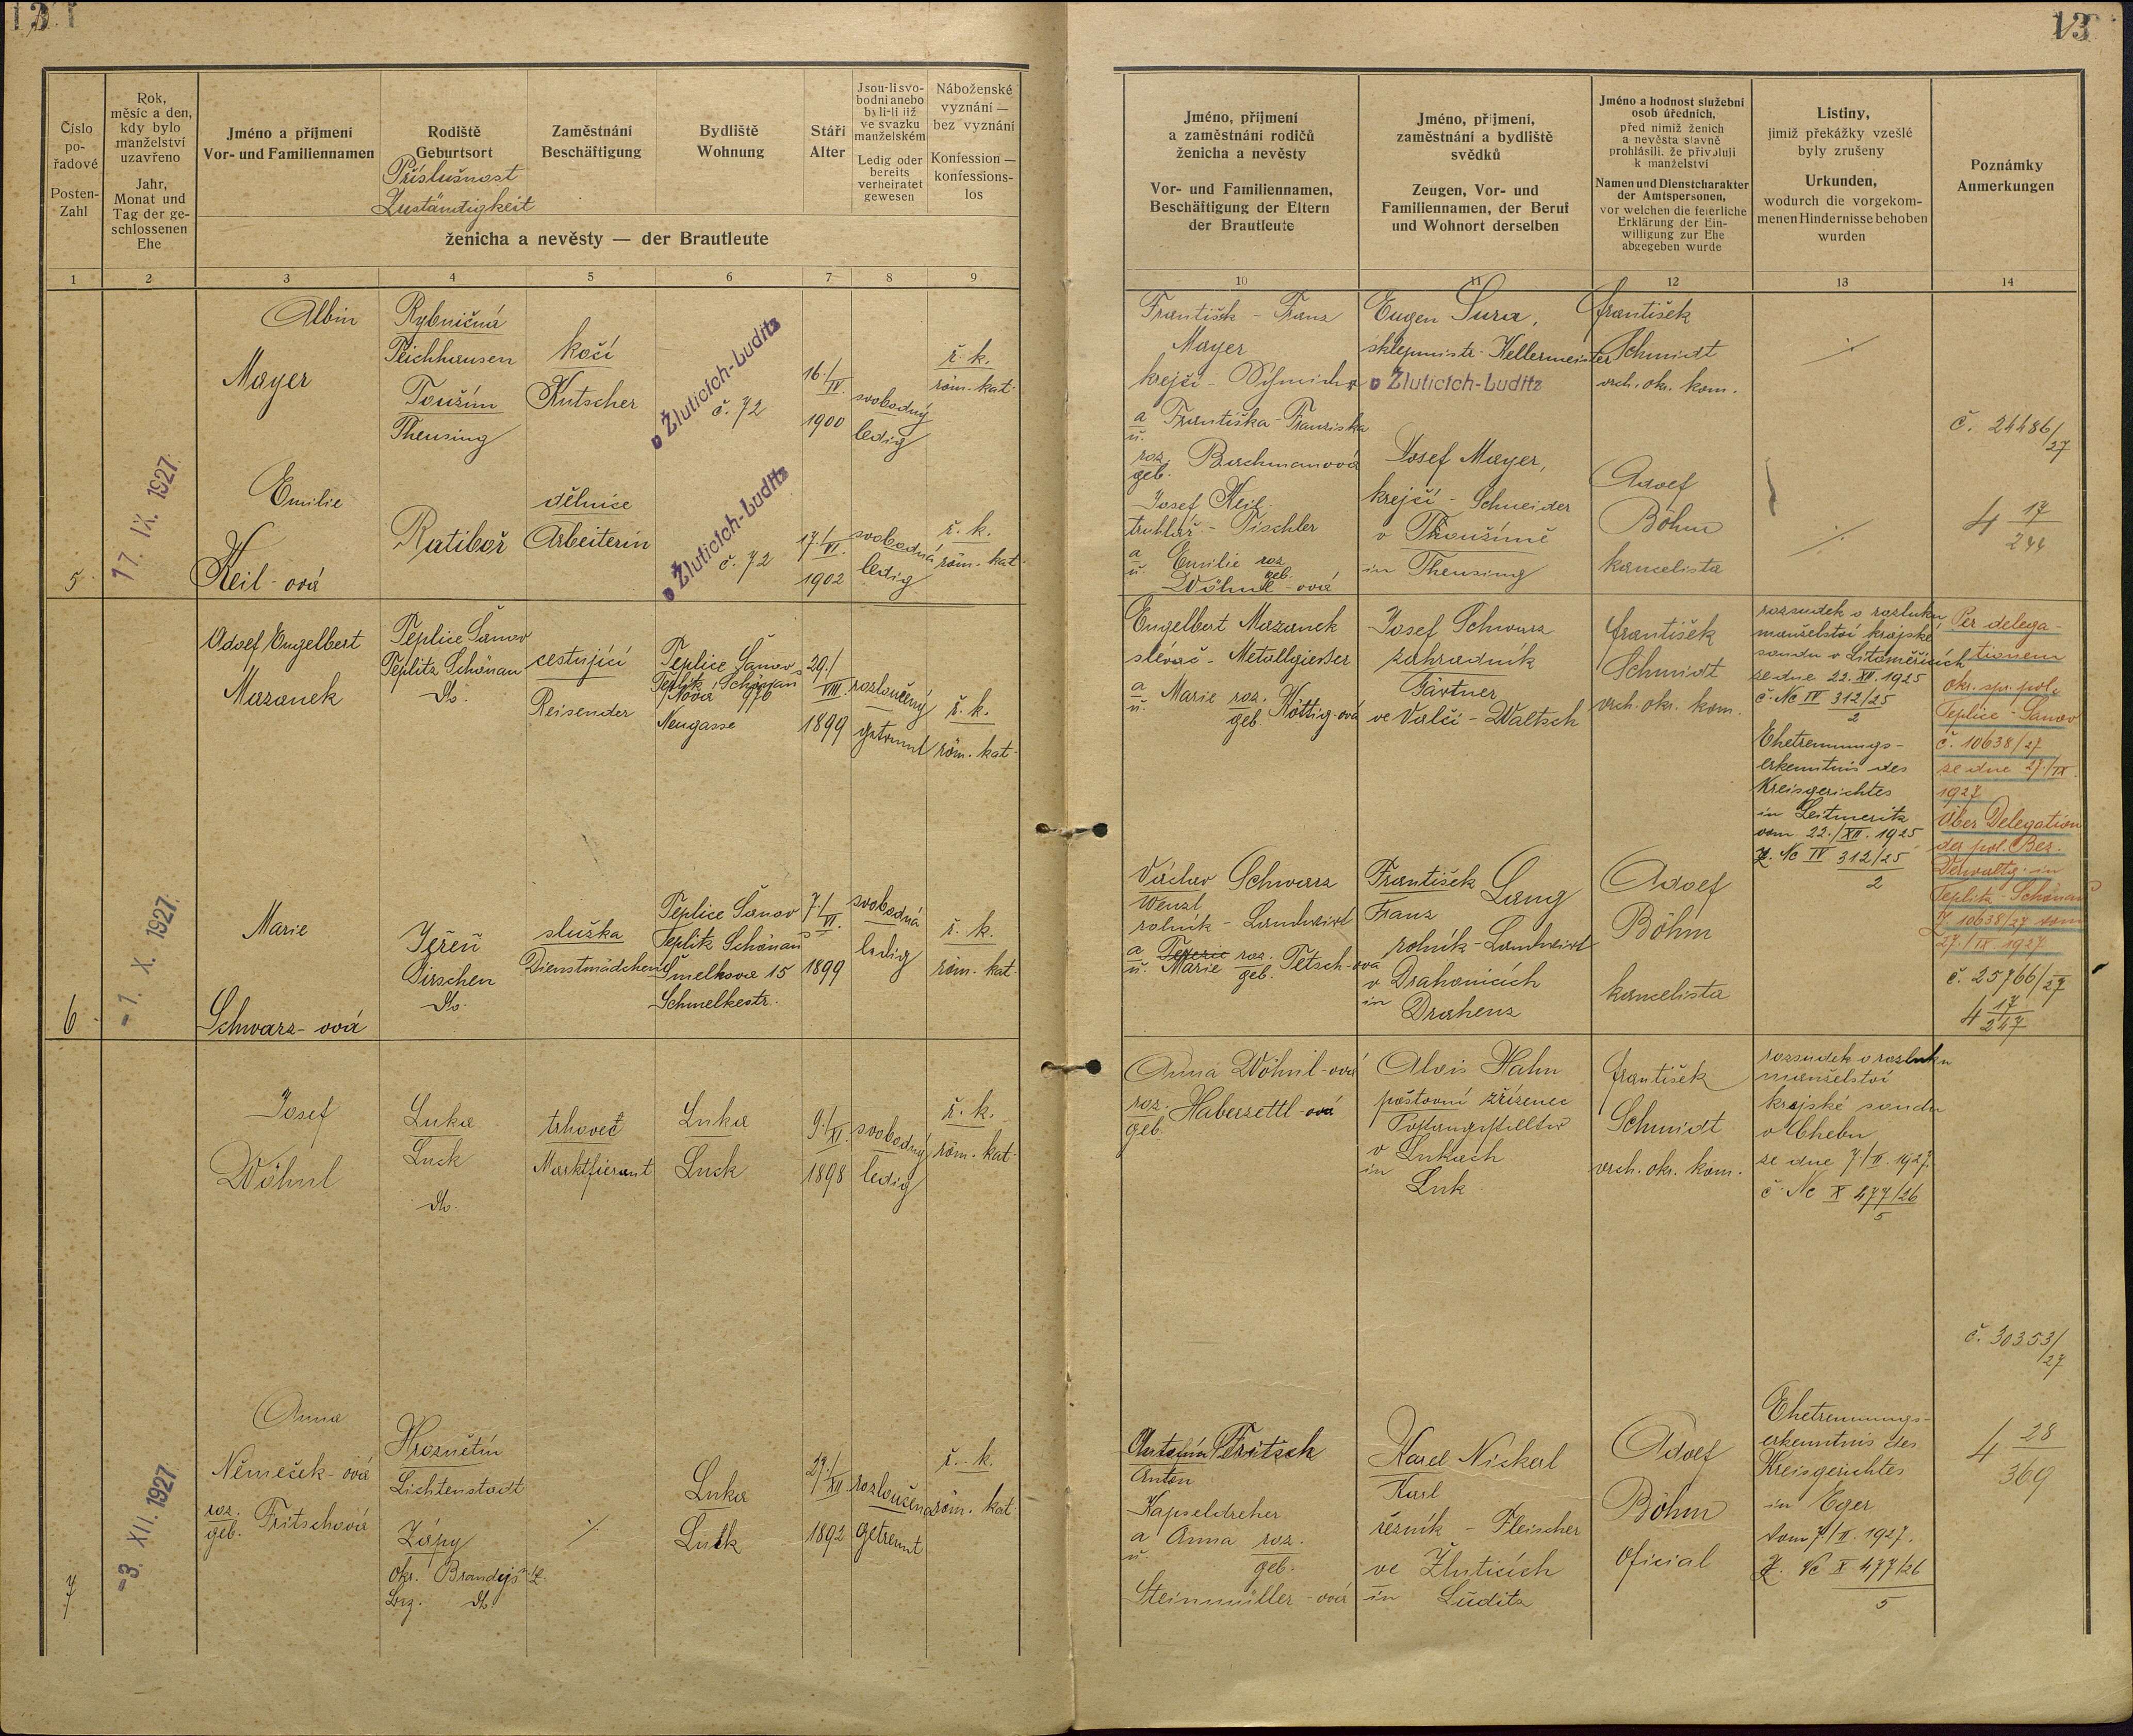 13
Číslo
po-
řadové
Posten-
Zahl
Rok,
měsíc a den,
kdy bylo
manželství
uzavřeno
Jahr,
Monat und
Tag der ge-
schlossenen
Ehe
Jméno a příjmení
Vor- und Familiennamen
Rodiště
Geburtsort
Příslušnost
Zuständigkeit
Zaměstnání
Beschäftigung
Bydliště
Wohnung
Stáří
Alter
Jsou-li svo-
bodni anebo
byli-li již
ve svazku
manželském
Ledig oder
bereits
verheiratet
gewesen
Náboženské
vyznání —
bez vyznání
Konfession —
konfessions-
los
ženicha a nevěsty — der Brautleute
Jméno, příjmení
a zaměstnání rodičů
ženicha a nevěsty
Vor- und Familiennamen,
Beschäftigung der Eltern
der Brautleute
Jméno, příjmení,
zaměstnání a bydliště
svědků
Zeugen, Vor- und
Familiennamen, der Beruf
und Wohnort derselben
Jméno a hodnost služební
osob úředních,
před nimiž ženich
a nevěsta slavně
prohlásili, že přivolují
k manželství
Namen und Dienstcharakter
der Amtspersonen,
vor welchen die feierliche
Erklärung der Ein-
willigung zur Ehe
abgegeben wurde
Listiny,
jimiž překážky vzešlé
byly zrušeny
Urkunden,
wodurch die vorgekom-
menen Hindernisse behoben
wurden
Poznámky
Anmerkungen
1 2 3 4 5 6 7 8 9 10 11 12 13 14
5
17. IX. 1927.
Albin
Mayer
Rybničná
Teichhausen
Toužim
Theusing
kočí
Kutscher
v Žluticích-Luditz
č. 72
16./IV.
1900
svobodný
ledig
ř. k.
röm. kat.
František - Franz
Mayer
krejčí - Schneider
a
u. Františka - Franziska
roz.
geb. Bachmanová
Eugen Sura,
sklepmistr - Kellermeister
v Žluticích-Luditz
František
Schmidt
vrch. okr. kom.
./.
č. 24486/27
Emilie
Keil-ová
Ratiboř
dělnice
Arbeiterin
v Žluticích-Luditz
č. 72
17./VI.
1902
svobodná
ledig
ř. k.
röm. kat.
Josef Keil
truhlář - Tischler
a
u. Emilie roz.
geb.
Wöhnl-ová
Josef Mayer,
krejčí - Schneider
v Thoužimě
in Theusing
Adolf
Böhm
kancelista
./.
4 17/244
6
-1. X. 1927.
Adolf Engelbert
Mazanek
Teplice Šanov
Teplitz Schönau
dto.
cestující
Reisender
Teplice Šanov
Teplitz Schönau
Nová 970
Neugasse
29./VIII.
1899
rozloučený
getrennt
ř. k.
röm. kat.
Engelbert Mazanek
slévač - Metallgiesser
a
u. Marie roz.
geb. Höttig-ová
Josef Schwarz
zahradník
Gärtner
ve Valči - Waltsch
František
Schmidt
vrch. okr. kom.
rozsudek o rozluku
manželství krajské
soudu v Litoměřicích
ze dne 22. XII. 1925
č. Nc IV 312/25
2
Ehetrennungs-
erkenntnis des
Kreisgerichtes
in Leitmeritz
vom 22./XII. 1925
Z. Nc IV 312/25
2
Per delega-
tionem
okr. spr. pol.
Teplice-Šanov
č. 10638/27
ze dne 27./IX.
1927
Über Delegation
der pol. Bez.
Verwaltg. in
Teplitz-Schönau
Z. 10638/27 vom
27./IX 1927.
Marie
Schwarz-ová
Jeřeň
Girschen
dto.
služka
Dienstmädchen
Teplice Šanov
Teplitz Schönau
Šmelkova 15
Schmelkestr.
7./VI.
1899
svobodná
ledig
ř. k.
röm. kat.
Václav Schwarz
Wenzl
rolník - Landwirt
a
u. Marie roz.
geb. Tetsch-ová
František Lang
Franz
rolník - Landwirt
v Drahonicích
in Drahenz
Adolf
Böhm
kancelista
č. 25766/27
4 17/247
7
-3. XII. 1927.
Josef
Wöhnl
Luka
Luck
dto.
trhovec
Marktfierant
Luka
Luck
9./XI.
1898
svobodný
ledig
ř. k.
röm. kat.
Anna Wöhnl-ová
roz.
geb. Haberzettl-ová
Alois Hahn
poštovní zřízenec
Postangestellter
v Lukách
in Luk
František
Schmidt
vrch. okr. kom.
rozsudek o rozluku
manželství
krajské soudu
v Chebu
ze dne 7./II. 1927.
č. Nc X 477/26
5
č. 30353/27
Anna
Němeček-ová
roz.
geb. Fritschová
Hroznětín
Lichtenstadt
Zápy
okr. Brandýs n/L.
Bez. dto.
./.
Luka
Luck
27./XII.
1892
rozloučena
getrennt
ř. k.
röm. kat.
Antonín Fritsch
Anton
Kapseldreher
a
u. Anna roz.
geb.
Steinmüller-ová
Karel Nickerl
Karl
řezník - Fleischer
ve Žluticích
in Luditz
Adolf
Böhm
oficial
Ehetrennungs-
erkenntnis des
Kreisgerichtes
in Eger
vom 7./II. 1927.
Z. Nc X 477/26
5
4 28/369